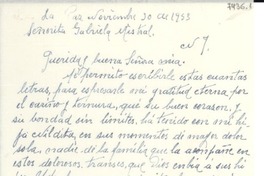 7936.1
La Paz Noviembre 30 de 1953
Señorita Gabriela Mistral.
N Y.
Querida y buena Señora mia.
Me permito escribirle estas cuantas
letras, para espresarle mi gratitud eterna, por
el cariño y ternura, que su buen corason, y
su bondad sin limites, ha tenido con mi hi
ja Matildita, en sus momentos de mayor dolor
sola, nadie de la familia que la acompañe en
estos dolorosos transes, que Dios enbia a sus hi